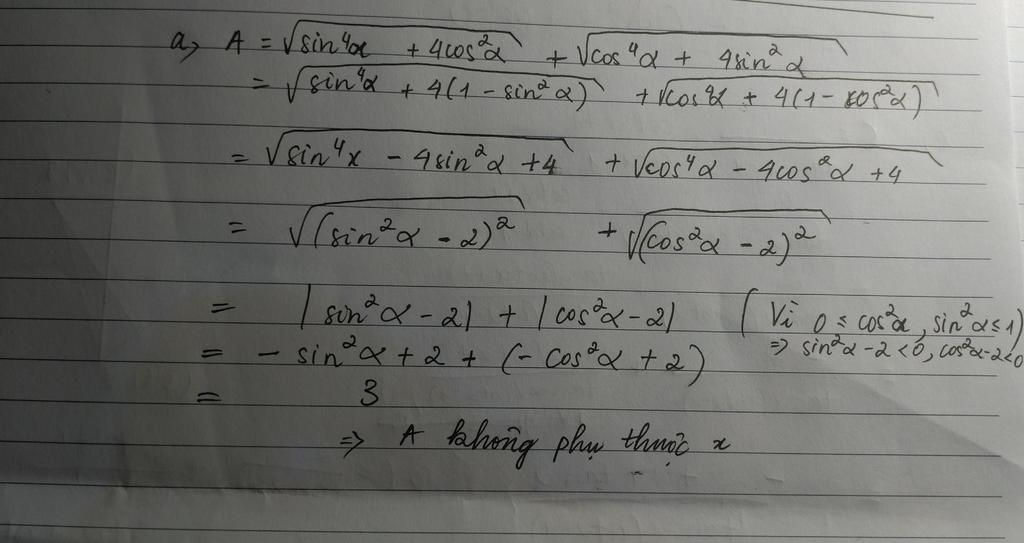 a, A = √(sin⁴α + 4cos²α) + √(cos⁴α + 4sin²α)
= √(sin⁴α + 4(1 - sin²α)) + √(cos⁴α + 4(1 - cos²α))
= √(sin⁴x - 4sin²α + 4) + √(cos⁴α - 4cos²α + 4)
= √((sin²α - 2)²) + √((cos²α - 2)²)
= |sin²α - 2| + |cos²α - 2| (Vì 0 ≤ cos²α, sin²α ≤ 1)
= - sin²α + 2 + (- cos²α + 2) ⇒ sin²α - 2 < 0, cos²α - 2 < 0
= 3
⇒ A không phụ thuộc x